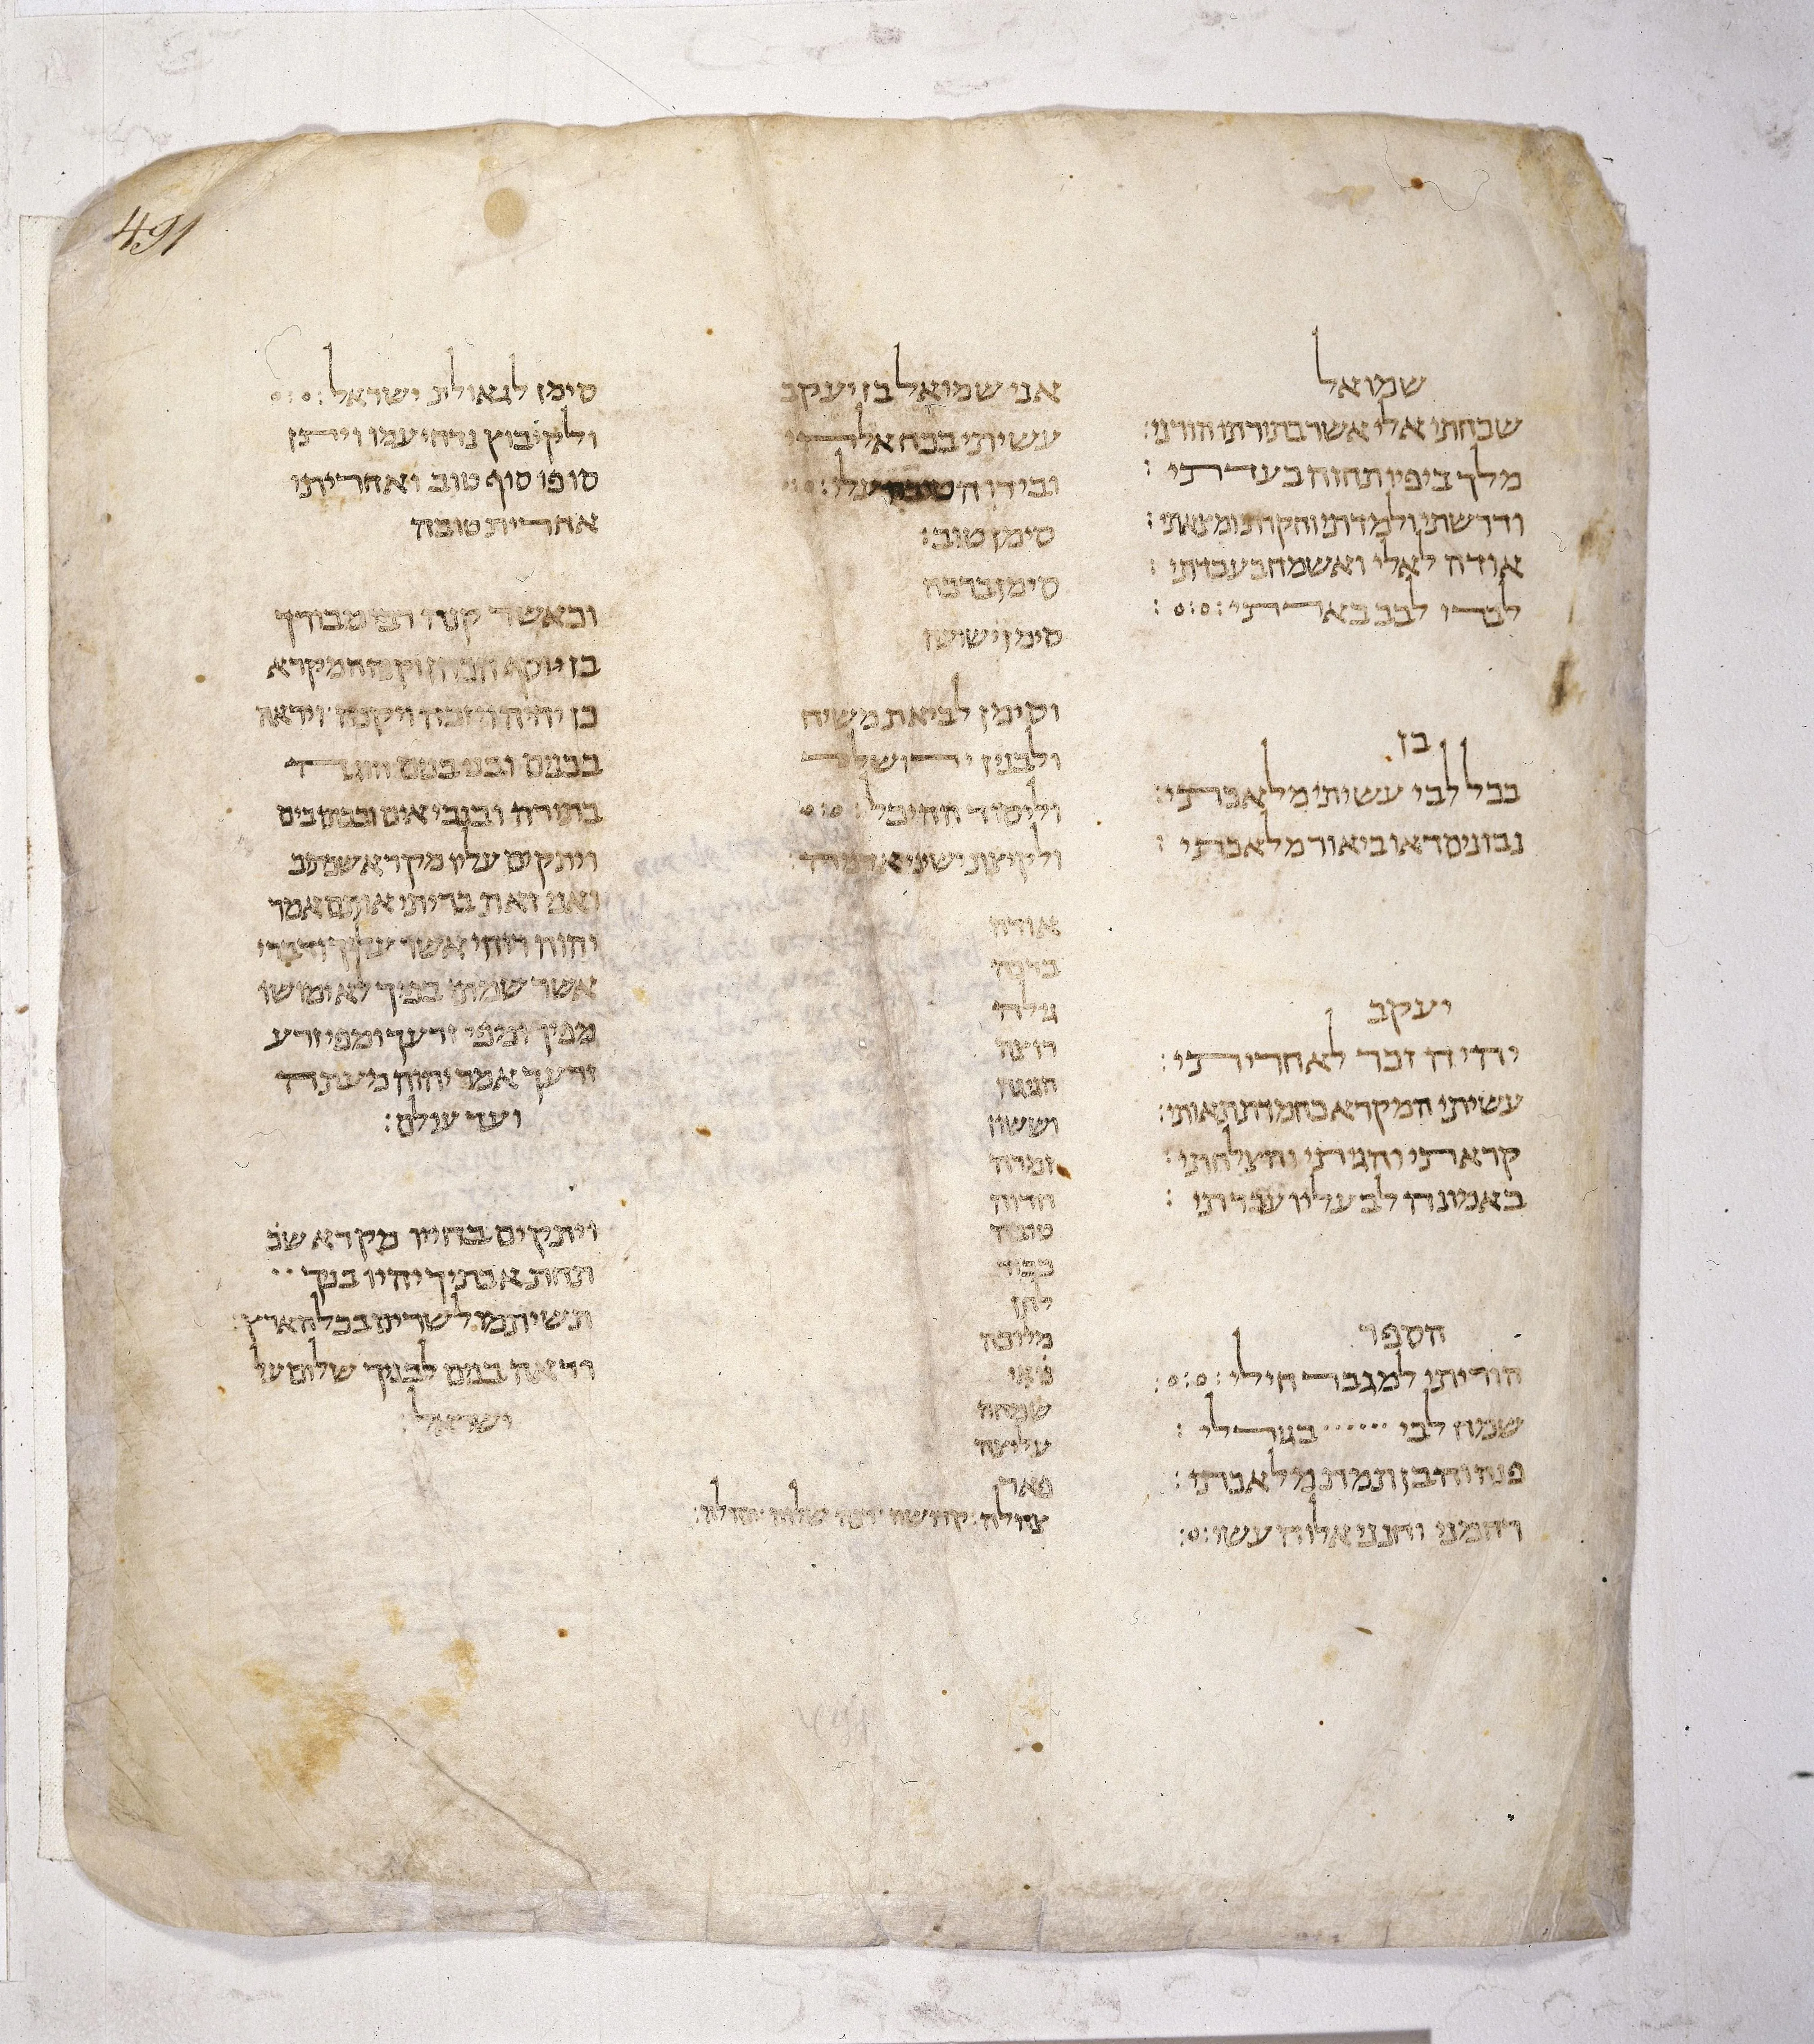 491
שמואל
שבחתי אלי אשר בתורתו הורני :
מלך ביפיו תחזה בעדתי :
ודרשתי ולמדתי וחקרתי ומצאתי :
אודה לאלי ואשמח בעבדתי :
לבבו
בן
בכל לבי עשיתי מלאכתי :
נבונים ראו ביאור מלאכתי :
יעקב
ידיד זכר לאחריתי :
עשיתי המקרא בחמדת תאותי :
קראתי והגיתי והצלחתי :
באמונה לב עליו עברתי :
הספר
הוריתי למגבר חילי :
שמח לבי בגורלי :
פנה וחבן תמת מלאכתי :
רחמני וחנני אלוה עשי :
אני שמואל בן יעקב
עשיתי בכח אלהי
ובידו הטובה עלי :
סימן טוב :
סימן ברכה
סימן ישועה
וסימן לביאת משיח
ולבנין ירושלם
וליסוד ההיכל :
ולקיצת ישני אדמה :
אורה
ברכה
גילה
דיצה
הגיגה
וששון
זמרה
חדוה
טובה
כבוד
לחן
מלוכה
נאי
שמחה
עליצה
פאר
צהלה
סימן לגאולת ישראל :
ולקיבוץ נדחי עמו ויתן
סופו סוף טוב ואחריתו
אחרית טובה
וכאשר קנה רבי מבורך
בן יוסף הכהן וק זה המקרא
כן יהיה ויזכה ויקנה ויראה
בבנים ובני בנים הוגה
בתורה ובנביאים ובכתובים
ויתקים עליו מקרא שכתוב
ואני זאת בריתי אותם אמר
יהוה רוחי אשר עליך ודברי
אשר שמתי בפיך לא ימושו
מפיך ומפי זרעך ומפי זרע
זרעך אמר יהוה מעתה
ועד עולם :
ויתקים בחייו מקרא שכ
תחת אבתיך יהיו בניך
תשיתמו לשרים בכל הארץ :
וראה בנים לבניך שלום על
ישראל :